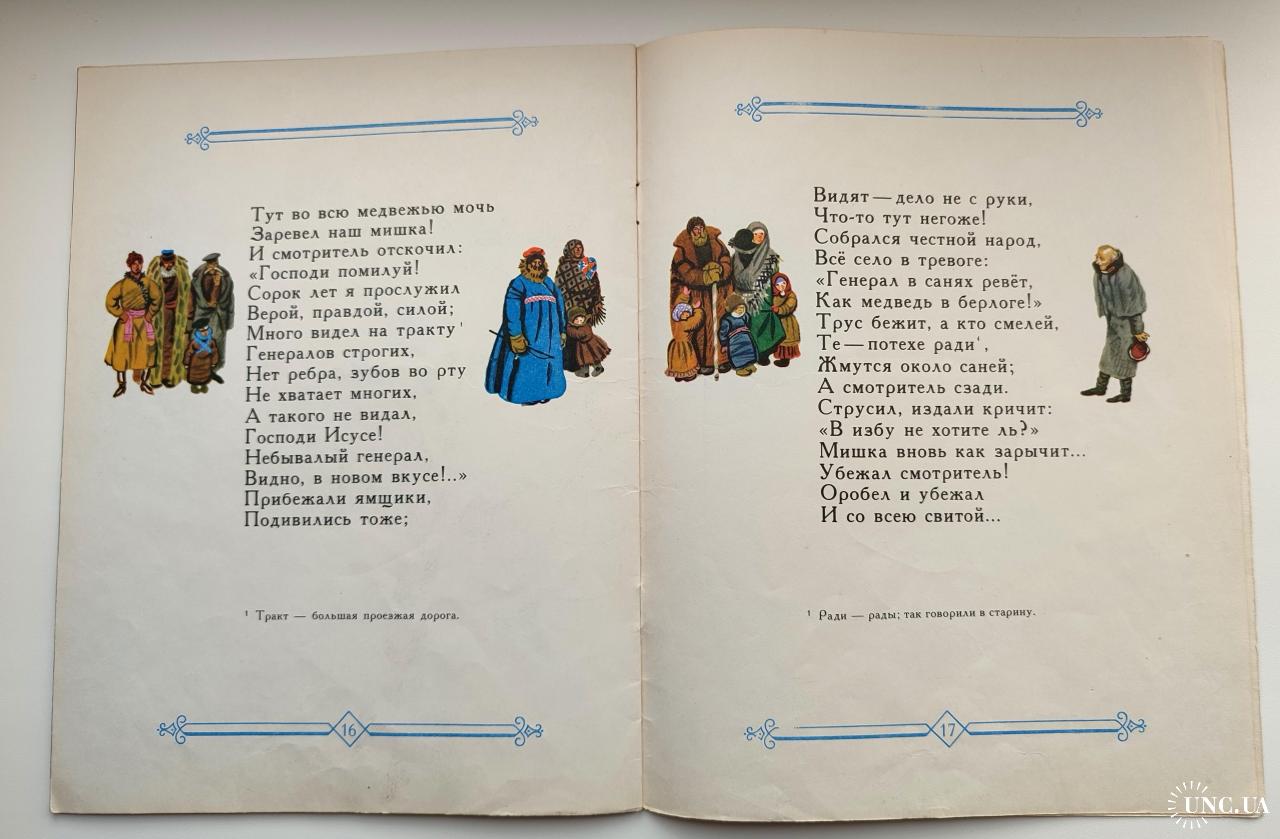 Тут во всю медвежью мочь
Заревел наш мишка!
И смотритель отскочил:
«Господи помилуй!
Сорок лет я прослужил
Верой, правдой, силой;
Много видел на тракту¹
Генералов строгих,
Нет ребра, зубов во рту
Не хватает многих,
А такого не видал,
Господи Исусе!
Небывалый генерал,
Видно, в новом вкусе!..»
Прибежали ямщики,
Подивились тоже;
¹ Тракт — большая проезжая дорога.
16
Видят — дело не с руки,
Что-то тут негоже!
Собрался честной народ,
Всё село в тревоге:
«Генерал в санях ревёт,
Как медведь в берлоге!»
Трус бежит, а кто смелей,
Те — потехе ради¹,
Жмутся около саней;
А смотритель сзади.
Струсил, издали кричит:
«В избу не хотите ль?»
Мишка вновь как зарычит...
Убежал смотритель!
Оробел и убежал
И со всею свитой...
¹ Ради — рады; так говорили в старину.
17
UNC.UA